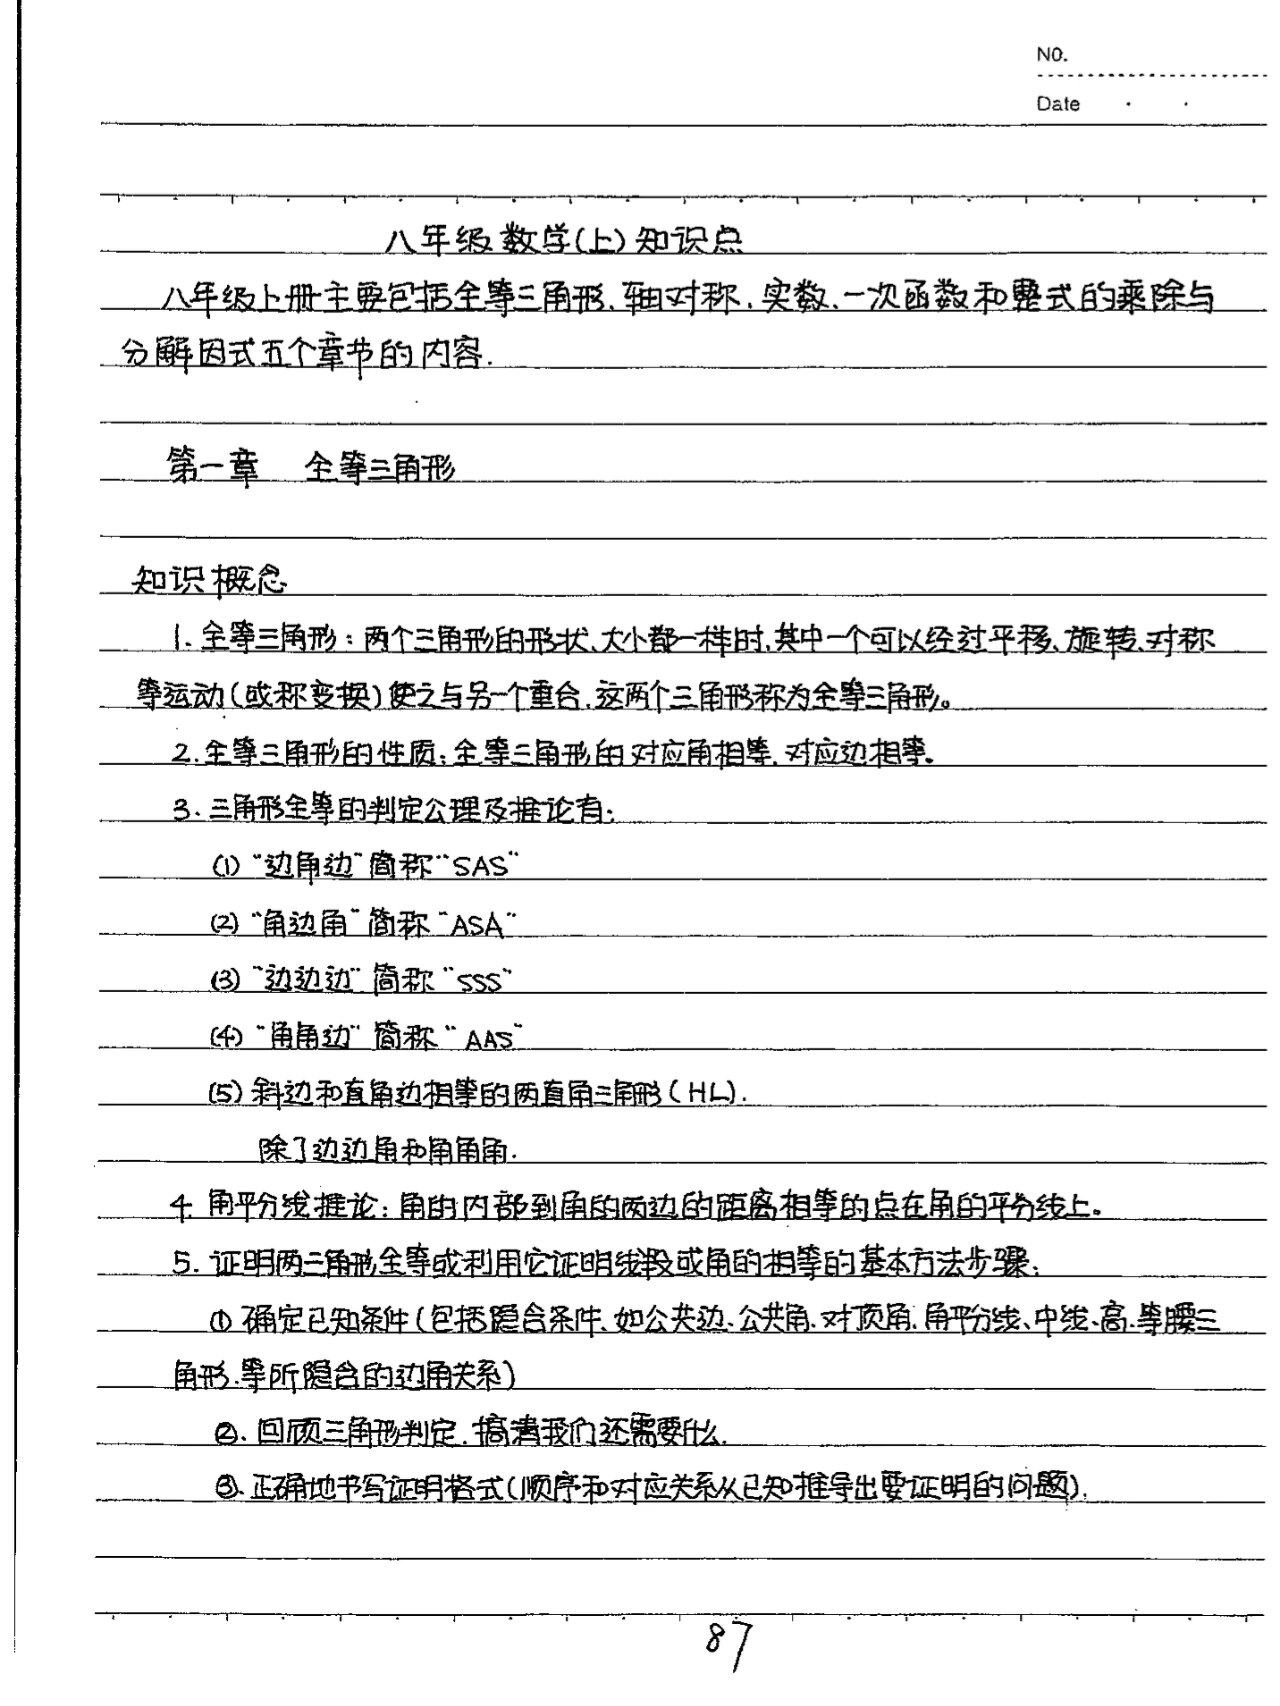 NO.
Date
八年级数学(上)知识点
八年级上册主要包括全等三角形、轴对称、实数、一次函数和整式的乘除与
分解因式五个章节的内容.
第一章 全等三角形
知识概念
1. 全等三角形:两个三角形的形状、大小都一样时,其中一个可以经过平移、旋转、对称
等运动(或称变换)使之与另一个重合,这两个三角形称为全等三角形。
2. 全等三角形的性质:全等三角形的对应角相等、对应边相等.
3. 三角形全等的判定公理及推论有:
(1) "边角边"简称"SAS"
(2) "角边角"简称"ASA"
(3) "边边边"简称"SSS"
(4) "角角边"简称"AAS"
(5) 斜边和直角边相等的两直角三角形(HL).
除了边边角和角角角.
4. 角平分线推论:角的内部到角的两边的距离相等的点在角的平分线上。
5. 证明两三角形全等或利用它证明线段或角的相等的基本方法步骤:
① 确定已知条件(包括隐含条件、如公共边、公共角、对顶角、角平分线、中线、高、等腰三
角形、等所隐含的边角关系)
②. 回顾三角形判定,搞清我们还需要什么.
③. 正确地书写证明格式(顺序和对应关系从已知推导出要证明的问题).
87